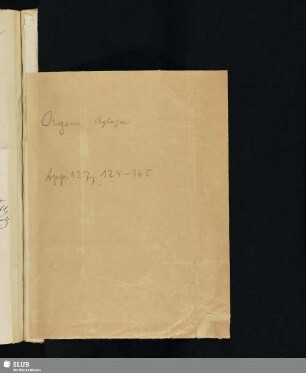 Orgeni Aglaja
App. 137, 124-165
SLUB
Wir führen Wissen.